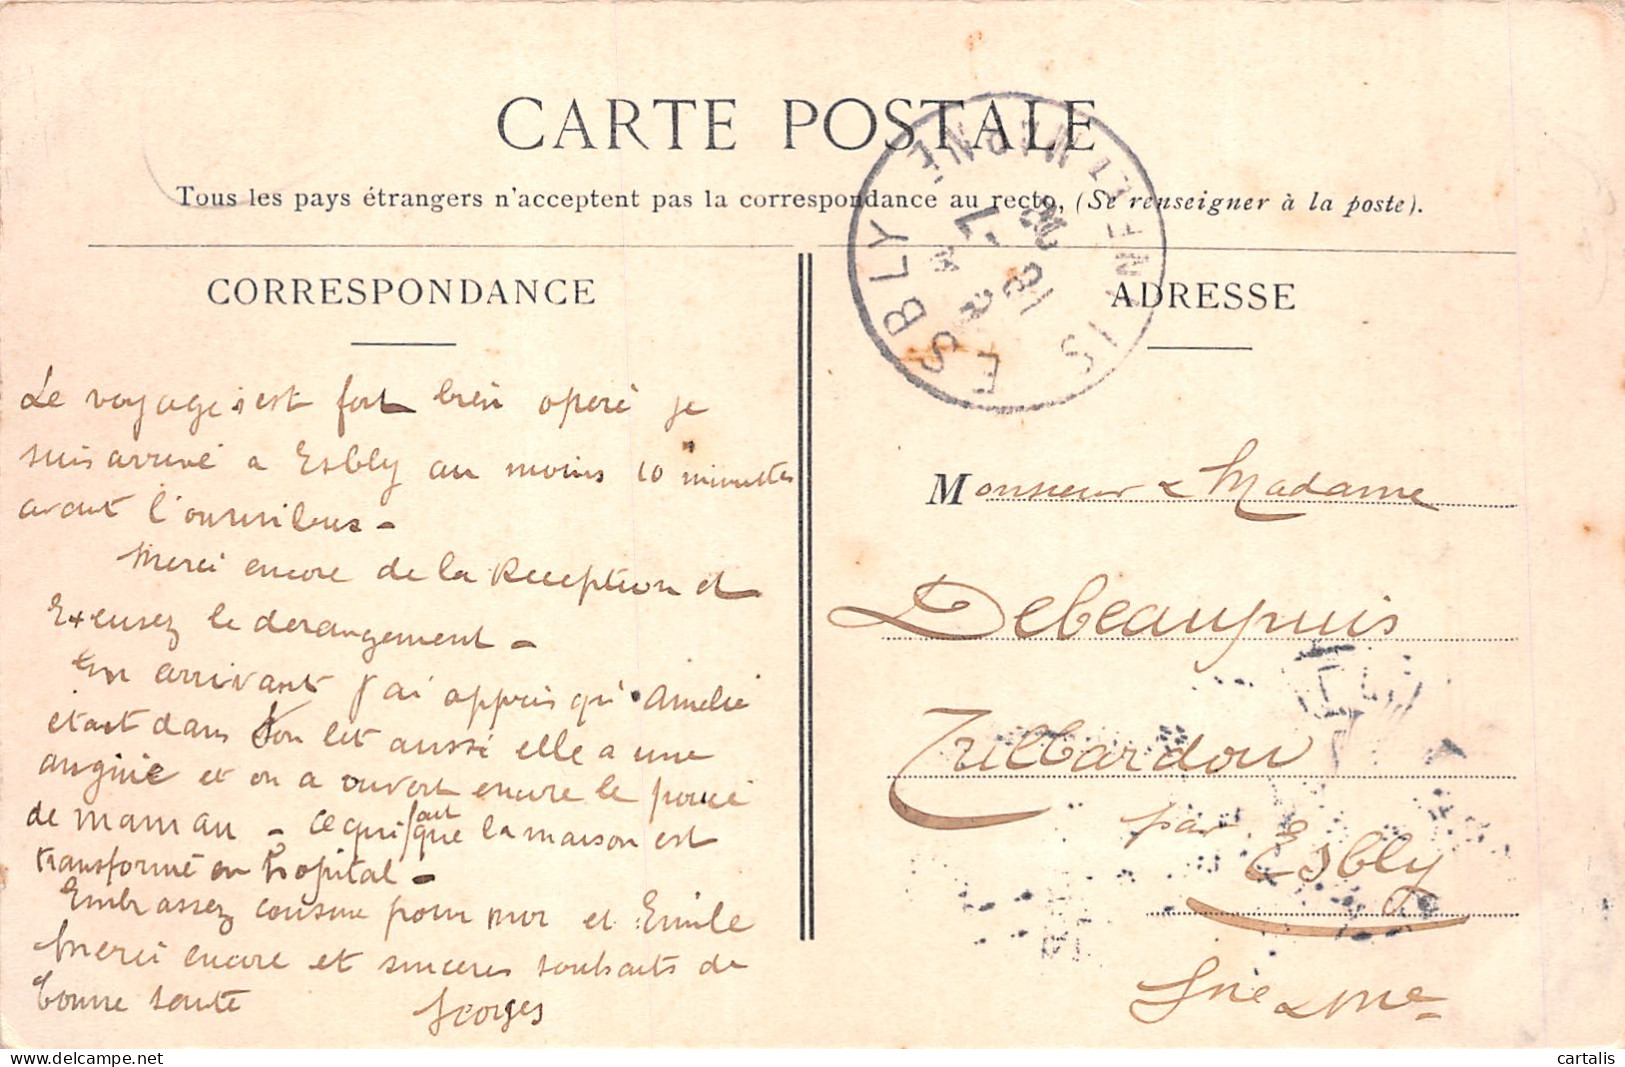 CARTE POSTALE
Tous les pays étrangers n'acceptent pas la correspondance au recto, (Se renseigner à la poste).
CORRESPONDANCE
Le voyage s'est fort bien operé je
suis arrivé a Esbly au moins 10 minuttes
avant l'omnibus -
Merci encore de la Reception et
Excusez le derangement -
En arrivant j'ai appris qu'Amelie
etait dans son lit aussi elle a une
angine et on a ouvert encore le pouce
de maman - ce qui fait que la maison est
transformé en hopital -
Embrassez cousine pour moi et Emile
Merci encore et sinceres souhaits de
bonne santé Georges
ESBLY
SEINE ET MARNE
ADRESSE
Monsieur & Madame
Debeaupuis
Trilbardou
par Esbly
Sne & Mne
cartalis